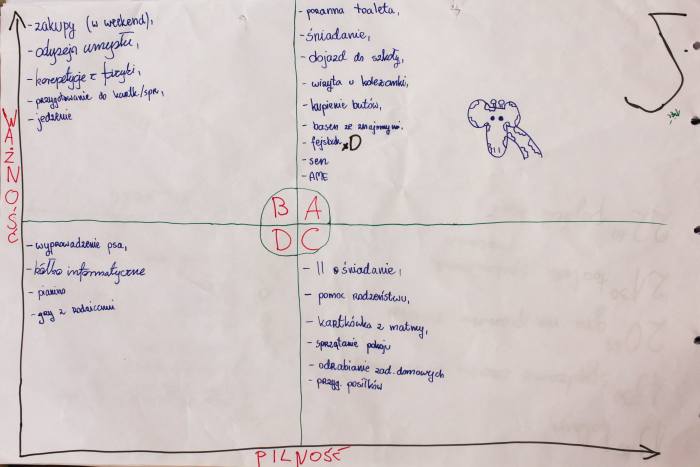 - zakupy (w weekend),
- odyseja umysłu,
- korepetycje z fizyki,
- przygotowanie do kartk/spr,
- jedzenie
- poranna toaleta,
- śniadanie,
- dojazd do szkoły,
- wizyta u koleżanki,
- kupienie butów,
- basen ze znajomymi.
- fejsbuk xD
- sen
- AME
WAŻNOŚĆ
B A
D C
- wyprowadzenie psa,
- kółko informatyczne
- pianino
- gry z rodzicami
- II śniadanie,
- pomoc rodzeństwu,
- kartkówka z matmy,
- sprzątanie pokoju
- odrabianie zad. domowych
- przyg. posiłków
PILNOŚĆ